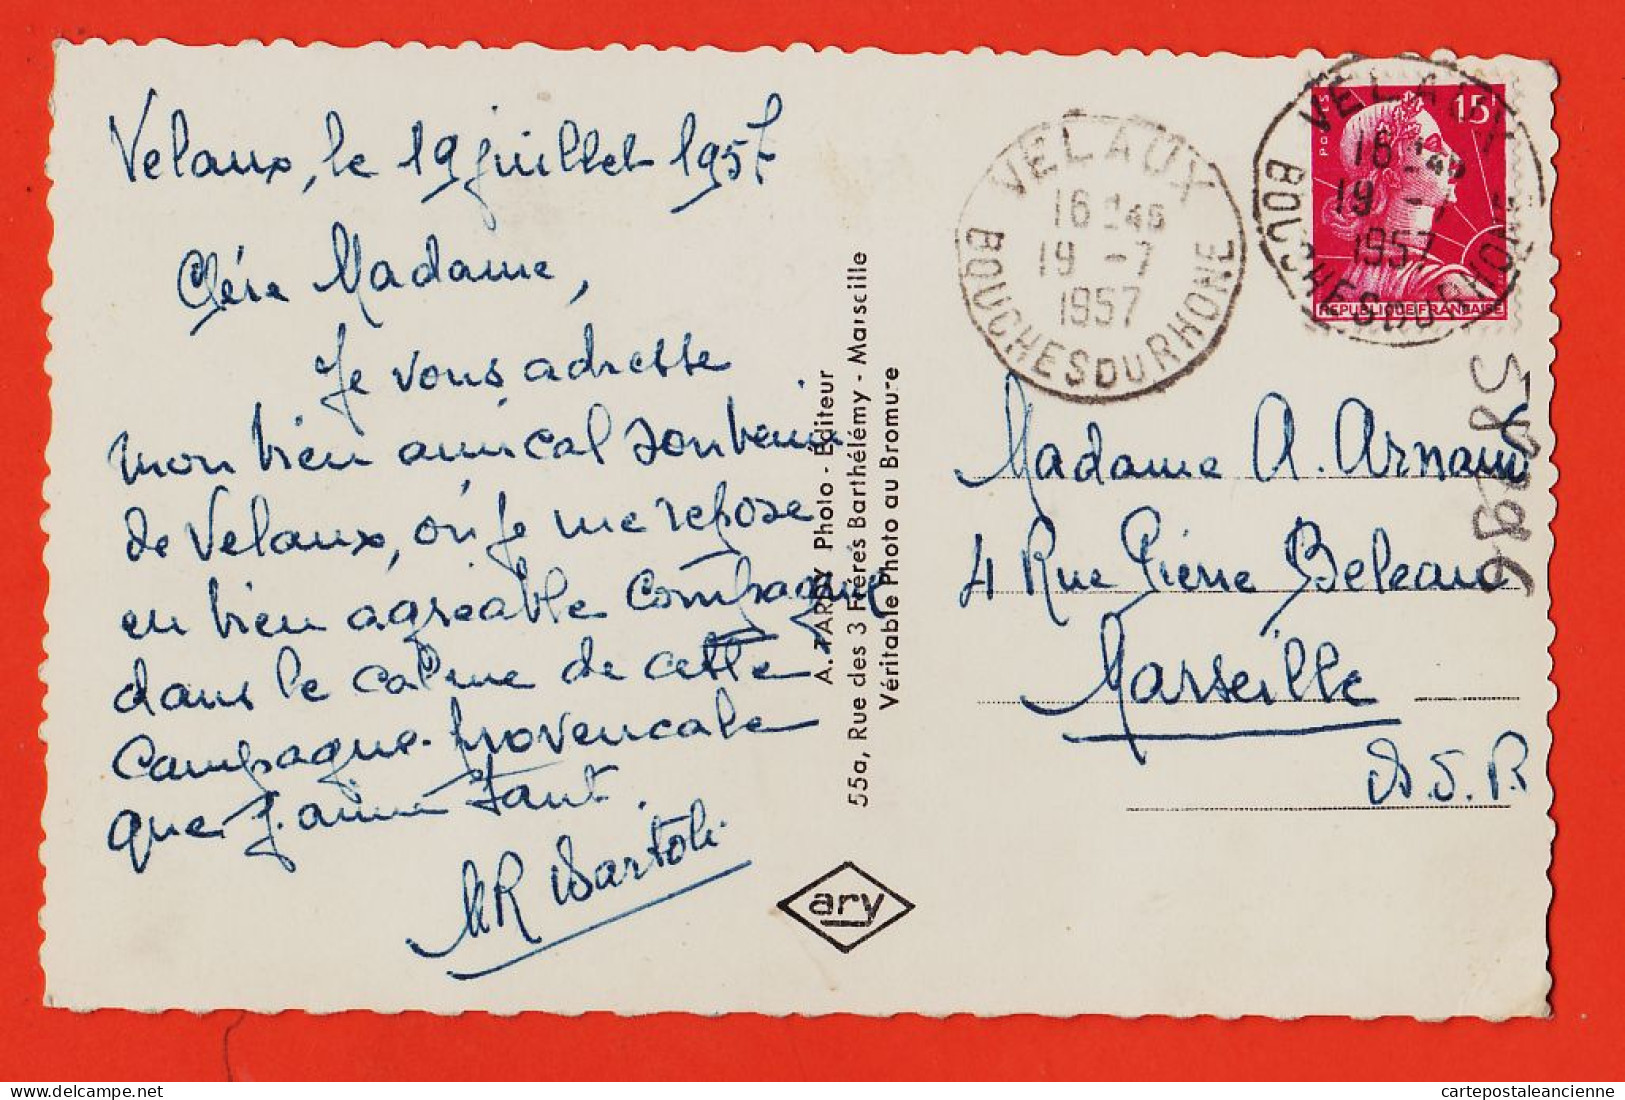 Velaux, le 19 juillet 1957
Chère Madame,
Je vous adresse
mon bien amical souvenir
de Velaux, où je me repose
en bien agréable compagnie
dans le calme de cette
campagne provencale
que j'aime tant.
MR Bartoli
A. TARDY Photo - Éditeur
55a, Rue des 3 Frères Barthélémy - Marseille
Véritable Photo au Bromure
ary
VELAUX
16 H45
19 -7
1957
BOUCHES DU RHONE
POSTES
15F
REPUBLIQUE FRANÇAISE
VELAUX
16 H45
19 -7
1957
BOUCHES DU RHONE
Madame A. Arnaud
4 Rue Pierre Beleau
Marseille
cartepostaleancienne